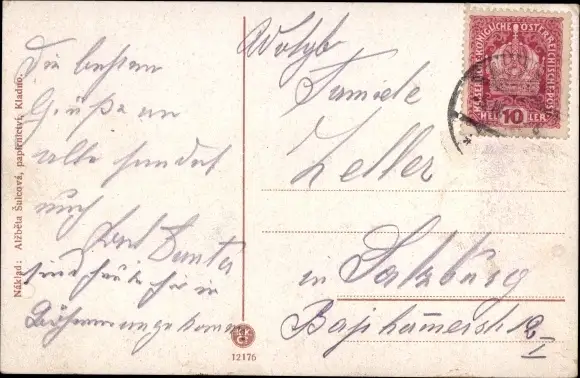 Die besten
Grüße an
alle sendet
euch
Karl Kanta
sind heute hier in
Böhmen angekommen
Náklad: Alžběta Šulcová, papírnictví, Kladno.
12176
Wohlgb
Familie
Zeller
in Salzburg
KAISERLICHE KÖNIGLICHE ÖSTERREICHISCHE POST
HELLER 10 HELLER